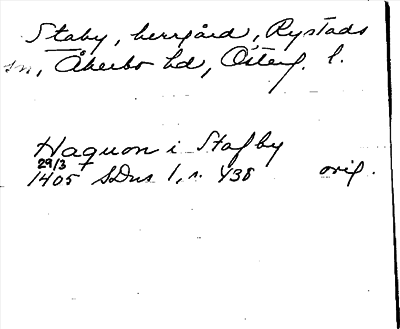 Staby, herrgård, Rystads
sn, Åkerbo hd, Österg. l.
Haquon i Stafby
29/3
1405 SDns 1, s. 438 orig.